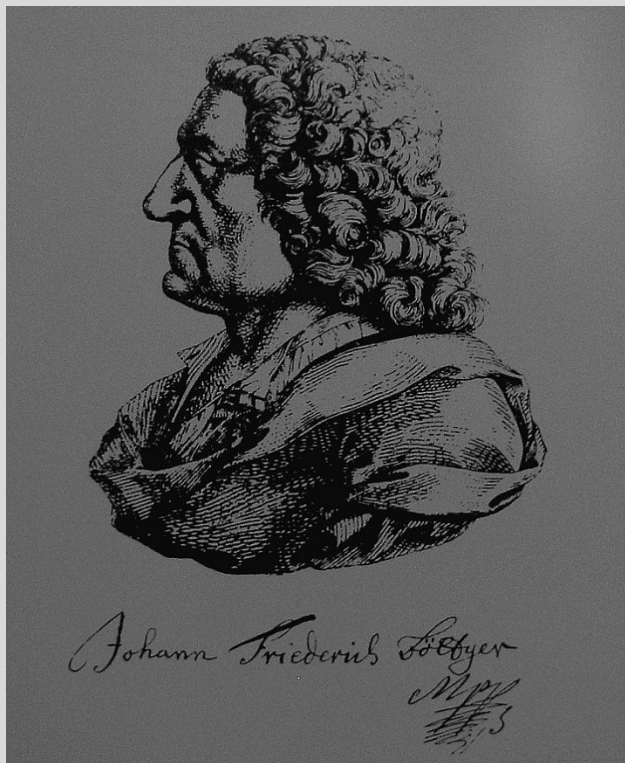 Johann Friederich Böttger
Mpp